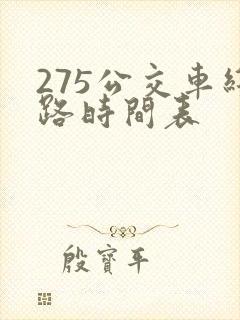 275公交車線
路時間表
殷寶平